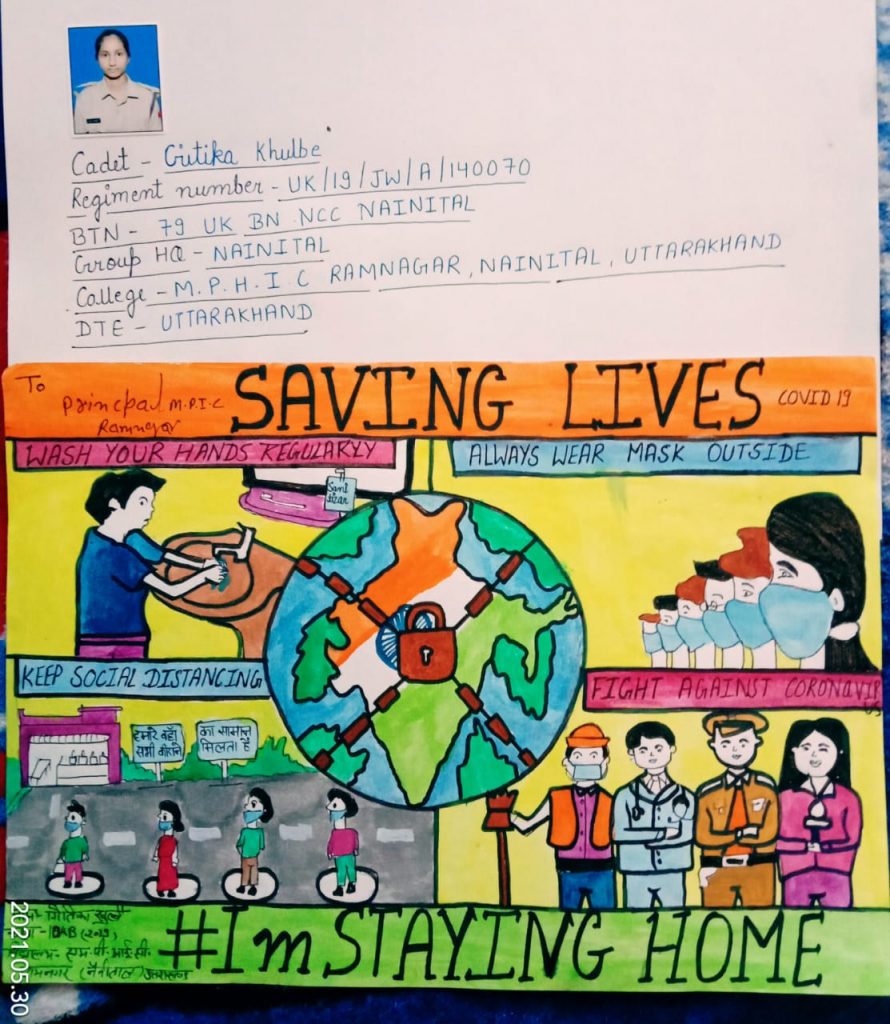 Cadet - Gitika Khulbe
Regiment number - UK/19/JW/A/140070
BTN - 79 UK BN NCC NAINITAL
Group HQ - NAINITAL
College - M.P.H.I.C RAMNAGAR, NAINITAL, UTTARAKHAND
DTE - UTTARAKHAND
To
Princpal M.P.I.C
Ramnagar
SAVING LIVES
COVID 19
WASH YOUR HANDS REGULARLY
ALWAYS WEAR MASK OUTSIDE
KEEP SOCIAL DISTANCING
FIGHT AGAINST CORONAVIRUS
हमारे यहाँ
सभी
का सामान
मिलता है
#Im STAYING HOME
(2019)
एम.पी.आई.सी.
(नैनीताल)
2021.05.30